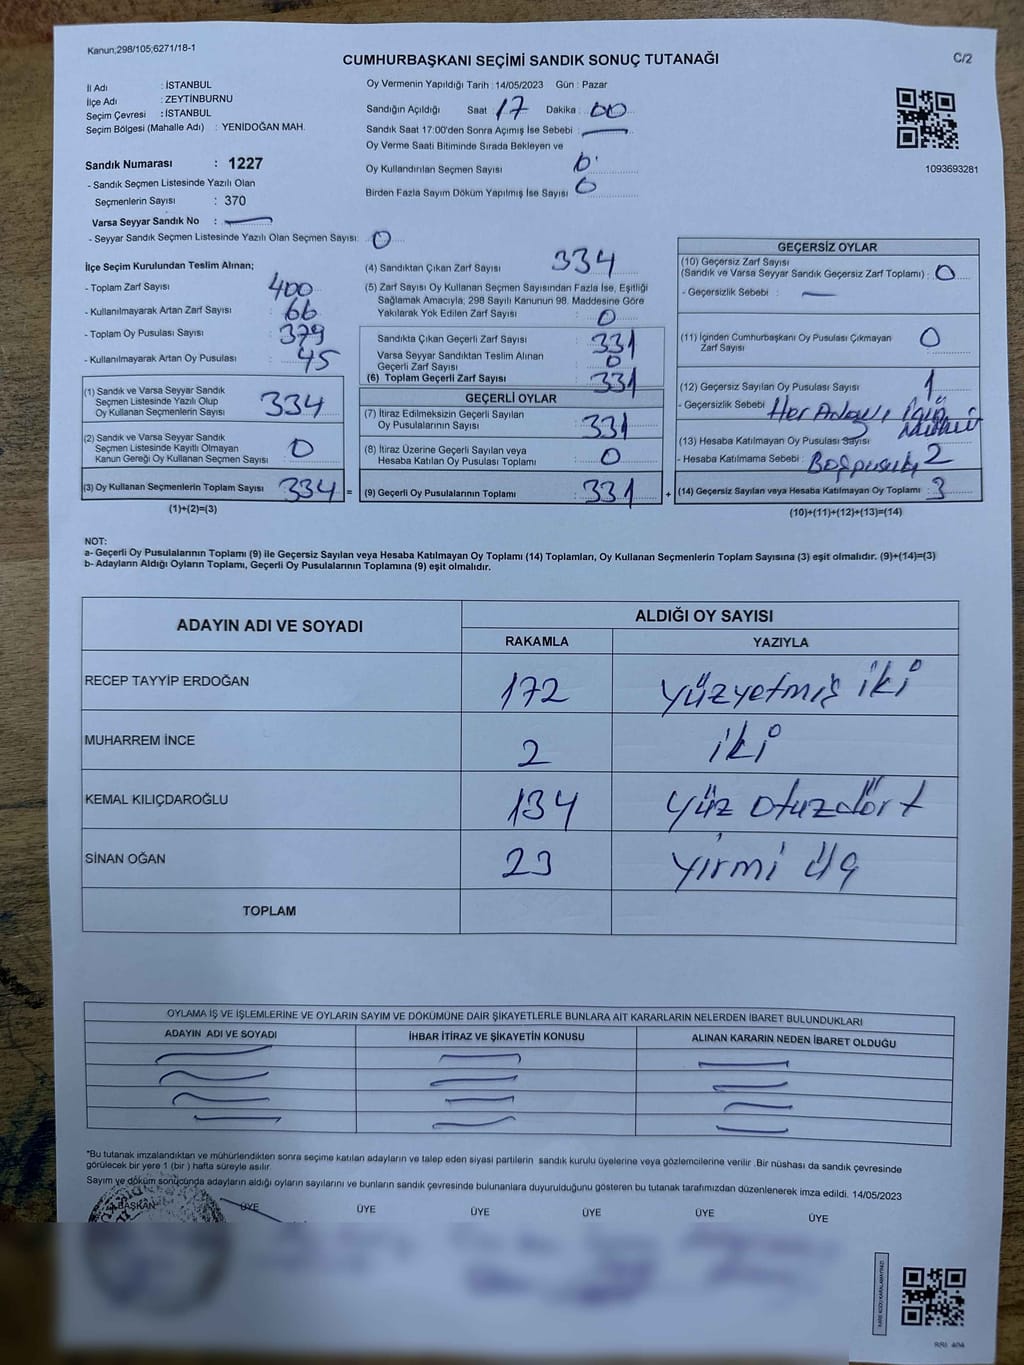 Kanun;298/105;6271/18-1
CUMHURBAŞKANI SEÇİMİ SANDIK SONUÇ TUTANAĞI
C/2
İl Adı : İSTANBUL
İlçe Adı : ZEYTİNBURNU
Seçim Çevresi : İSTANBUL
Seçim Bölgesi (Mahalle Adı) : YENİDOĞAN MAH.
Sandık Numarası : 1227
- Sandık Seçmen Listesinde Yazılı Olan
Seçmenlerin Sayısı : 370
Varsa Seyyar Sandık No :
- Seyyar Sandık Seçmen Listesinde Yazılı Olan Seçmen Sayısı: 0
Oy Vermenin Yapıldığı Tarih : 14/05/2023 Gün : Pazar
Sandığın Açıldığı Saat : 17 Dakika : 00
Sandık Saat 17:00'den Sonra Açımış İse Sebebi :
Oy Verme Saati Bitiminde Sırada Bekleyen ve
Oy Kullandırılan Seçmen Sayısı : 0
Birden Fazla Sayım Döküm Yapılmış İse Sayısı : 0
1093693281
İlçe Seçim Kurulundan Teslim Alınan;
- Toplam Zarf Sayısı : 400
- Kullanılmayarak Artan Zarf Sayısı : 66
- Toplam Oy Pusulası Sayısı : 379
- Kullanılmayarak Artan Oy Pusulası : 45
(1) Sandık ve Varsa Seyyar Sandık
Seçmen Listesinde Yazılı Olup
Oy Kullanan Seçmenlerin Sayısı : 334
(2) Sandık ve Varsa Seyyar Sandık
Seçmen Listesinde Kayıtlı Olmayan
Kanun Gereği Oy Kullanan Seçmen Sayısı : 0
(3) Oy Kullanan Seçmenlerin Toplam Sayısı : 334 =
(1)+(2)=(3)
(4) Sandıktan Çıkan Zarf Sayısı : 334
(5) Zarf Sayısı Oy Kullanan Seçmen Sayısından Fazla İse, Eşitliği
Sağlamak Amacıyla; 298 Sayılı Kanunun 98. Maddesine Göre
Yakılarak Yok Edilen Zarf Sayısı : 0
Sandıkta Çıkan Geçerli Zarf Sayısı : 331
Varsa Seyyar Sandıktan Teslim Alınan
Geçerli Zarf Sayısı : 0
(6) Toplam Geçerli Zarf Sayısı : 331
GEÇERLİ OYLAR
(7) İtiraz Edilmeksizin Geçerli Sayılan
Oy Pusulalarının Sayısı : 331
(8) İtiraz Üzerine Geçerli Sayılan veya
Hesaba Katılan Oy Pusulası Toplamı : 0
(9) Geçerli Oy Pusulalarının Toplamı : 331 +
GEÇERSİZ OYLAR
(10) Geçersiz Zarf Sayısı
(Sandık ve Varsa Seyyar Sandık Geçersiz Zarf Toplamı) : 0
- Geçersizlik Sebebi :
(11) İçinden Cumhurbaşkanı Oy Pusulası Çıkmayan
Zarf Sayısı : 0
(12) Geçersiz Sayılan Oy Pusulası Sayısı : 1
- Geçersizlik Sebebi : Her Adayı için
(13) Hesaba Katılmayan Oy Pusulası Sayısı
- Hesaba Katılmama Sebebi : Boş pusula 2
(14) Geçersiz Sayılan veya Hesaba Katılmayan Oy Toplamı : 3
(10)+(11)+(12)+(13)=(14)
NOT:
a- Geçerli Oy Pusulalarının Toplamı (9) ile Geçersiz Sayılan veya Hesaba Katılmayan Oy Toplamı (14) Toplamları, Oy Kullanan Seçmenlerin Toplam Sayısına (3) eşit olmalıdır. (9)+(14)=(3)
b- Adayların Aldığı Oyların Toplamı, Geçerli Oy Pusulalarının Toplamına (9) eşit olmalıdır.
ADAYIN ADI VE SOYADI
ALDIĞI OY SAYISI
RAKAMLA YAZIYLA
RECEP TAYYİP ERDOĞAN 172 yüzyetmiş iki
MUHARREM İNCE 2 iki
KEMAL KILIÇDAROĞLU 134 yüz otuzdört
SİNAN OĞAN 23 yirmi üç
TOPLAM
OYLAMA İŞ VE İŞLEMLERİNE VE OYLARIN SAYIM VE DÖKÜMÜNE DAİR ŞİKAYETLERLE BUNLARA AİT KARARLARIN NELERDEN İBARET BULUNDUKLARI
ADAYIN ADI VE SOYADI İHBAR İTİRAZ VE ŞİKAYETİN KONUSU ALINAN KARARIN NEDEN İBARET OLDUĞU
*Bu tutanak imzalandıktan ve mühürlendikten sonra seçime katılan adayların ve talep eden siyasi partilerin sandık kurulu üyelerine veya gözlemcilerine verilir .Bir nüshası da sandık çevresinde
görülecek bir yere 1 (bir ) hafta süreyle asılır.
Sayım ve döküm sonucunda adayların aldığı oyların sayılarını ve bunların sandık çevresinde bulunanlara duyurulduğunu gösteren bu tutanak tarafımızdan düzenlenerek imza edildi. 14/05/2023
BAŞKAN ÜYE ÜYE ÜYE ÜYE ÜYE ÜYE